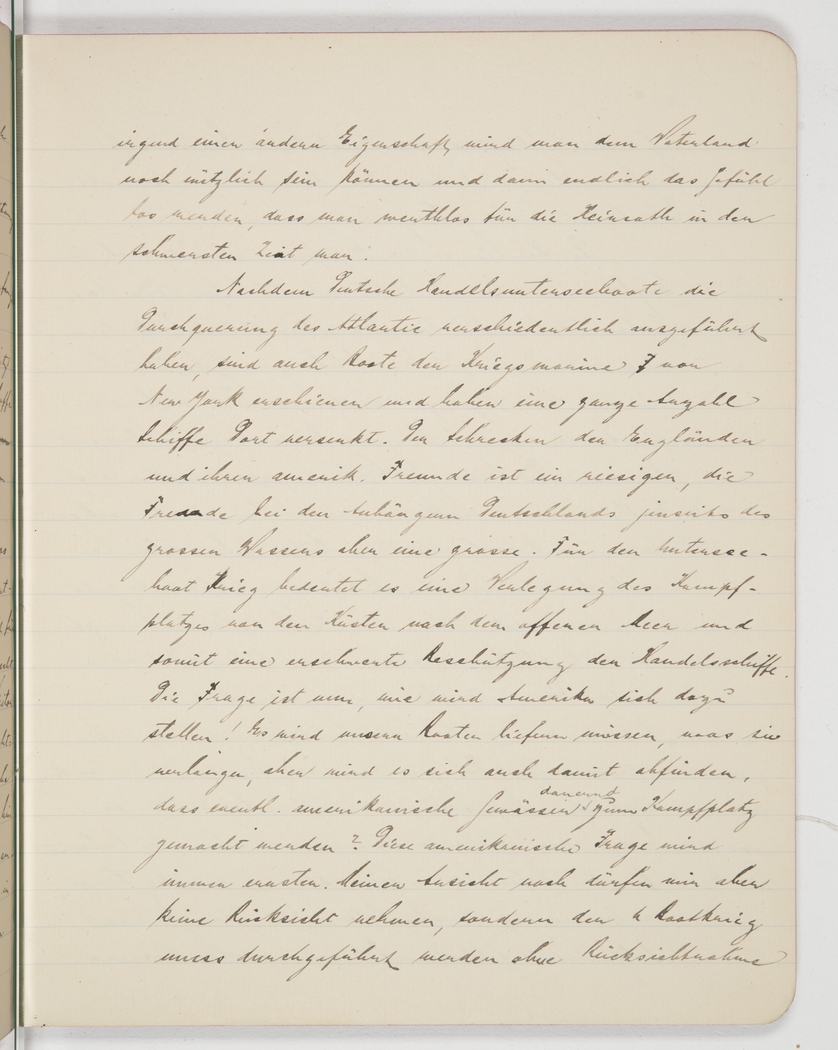 irgend einer andern Eigenschaft, wird man dem Vaterland
noch nützlich sein können und dann endlich das Gefühl
los werden, dass man werthlos für die Heimath in der
schwersten Zeit war.
Nachdem Deutsche Handelsunterseeboote die
Durchquerung des Atlantic verschiedentlich ausgeführt
haben, sind auch Boote der Kriegsmarine vor
New York erschienen und haben eine ganze Anzahl
Schiffe Dort versenkt. Der Schrecken der Engländer
und ihrer amerik. Freunde ist ein riesiger, die
Freude bei den Anhängern Deutschlands jenseits des
grossen Wassers aber eine grosse. Für den Untersee-
boot Krieg bedeutet es eine Verlegung des Kampf-
platzes von den Küsten nach dem offenen Meer und
somit eine erschwerte Beschützung der Handelsschiffe.
Die Frage ist nun, wie wird Amerika sich dazu
stellen! Es wird unsern Booten liefern müssen, was sie
verlangen, aber wird es sich auch damit abfinden,
dass eventl. amerikanische Gewässer dauernd zum Kampfplatz
gemacht werden? Diese amerikanische Frage wird
immer ernster. Meiner Ansicht nach dürfen wir aber
keine Rücksicht nehmen, sondern der U Bootkrieg
muss durchgeführt werden ohne Rücksichtnahme